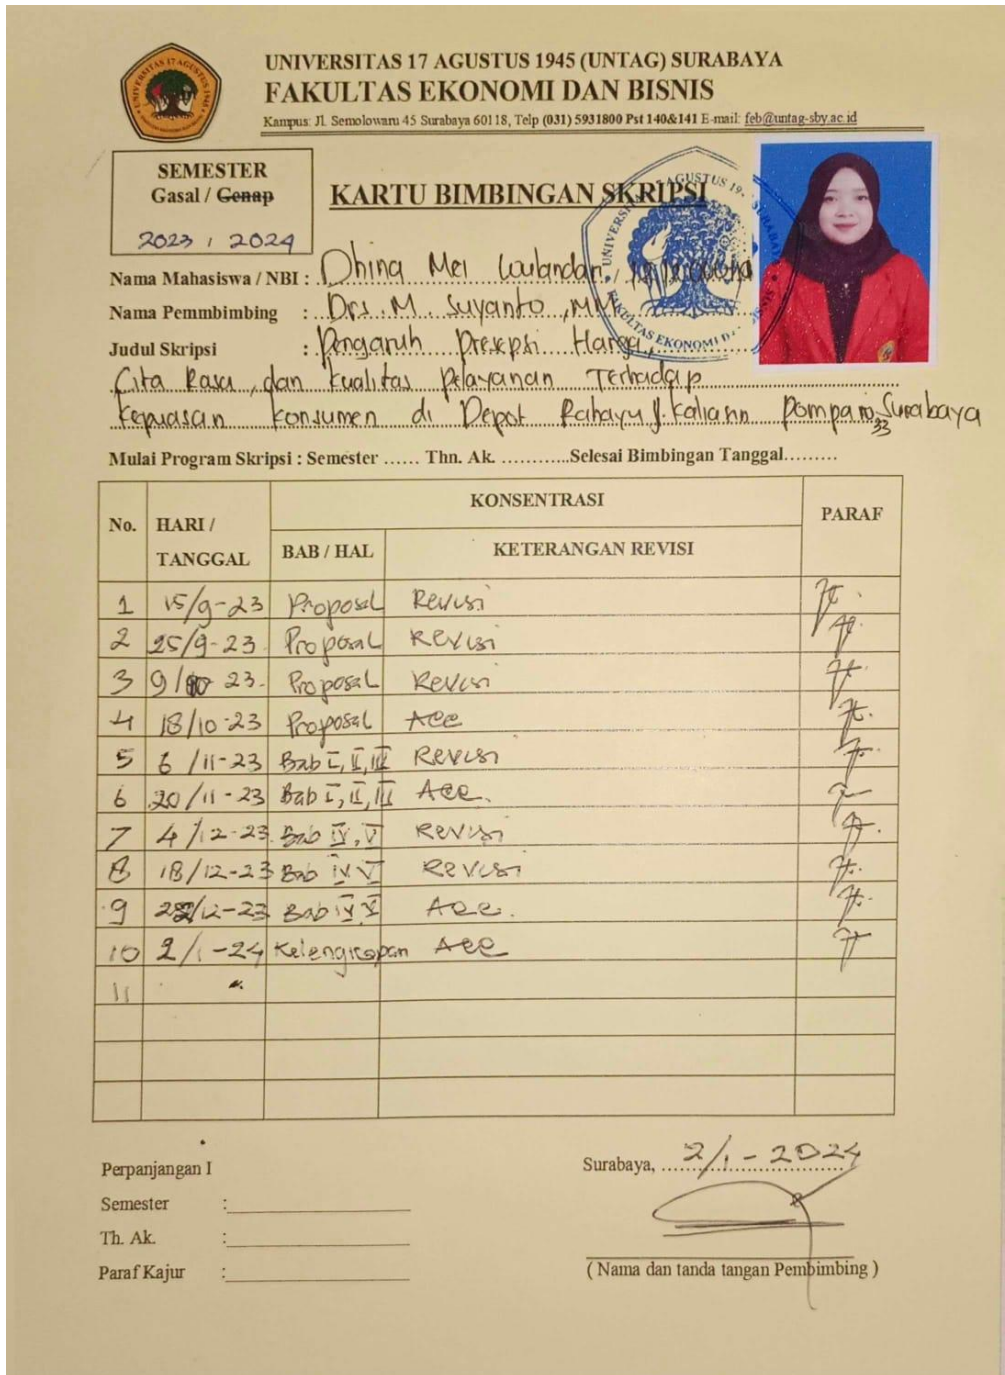 UNIVERSITAS 17 AGUSTUS 1945 (UNTAG) SURABAYA
FAKULTAS EKONOMI DAN BISNIS
Kampus: Jl. Semolowaru 45 Surabaya 60118, Telp (031) 5931800 Pst 140&141 E-mail: feb@untag-sby.ac.id
SEMESTER
Gasal / Genap
2023 / 2024
KARTU BIMBINGAN SKRIPSI
Nama Mahasiswa / NBI : Dhina Mei Wulandari
Nama Pemmbimbing : Drs. M. Suyanto, MM
Judul Skripsi : Pengaruh Presepsi Harga,
Cita Rasa, dan Kualitas Pelayanan Terhadap
Kepuasan Konsumen di Depot Rahayu Jl. Kaliann Pompa no 33 Surabaya
Mulai Program Skripsi : Semester ...... Thn. Ak. ............Selesai Bimbingan Tanggal.........
No. HARI / TANGGAL KONSENTRASI PARAF
BAB / HAL KETERANGAN REVISI
1 15/9-23 Proposal Revisi
2 25/9-23 Proposal Revisi
3 9/10 23 Proposal Revisi
4 18/10-23 Proposal Acc
5 6/11-23 Bab I, II, III Revisi
6 20/11-23 Bab I, II, III Acc.
7 4/12-23 Bab IV, V Revisi
8 18/12-23 Bab IV V Revisi
9 /12-23 Bab IV V Acc.
10 2/1-24 Kelengkapan Acc
11
Perpanjangan I
Semester :
Th. Ak. :
Paraf Kajur :
Surabaya, 2/1-2024
( Nama dan tanda tangan Pembimbing )